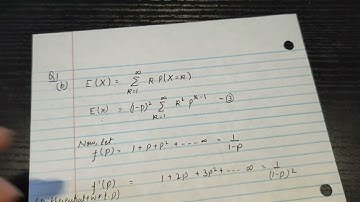 Q1
(b) E(X) = ∞∑k=1 k P(X=k)
E(x) = (1-p)² ∞∑k=1 k² p^(k-1) - ②
Now, let
f(p) = 1 + p + p² + ---- ∞ = 1/(1-p)
f'(p) = 1 + 2p + 3p² + ---- ∞ = 1/(1-p)²